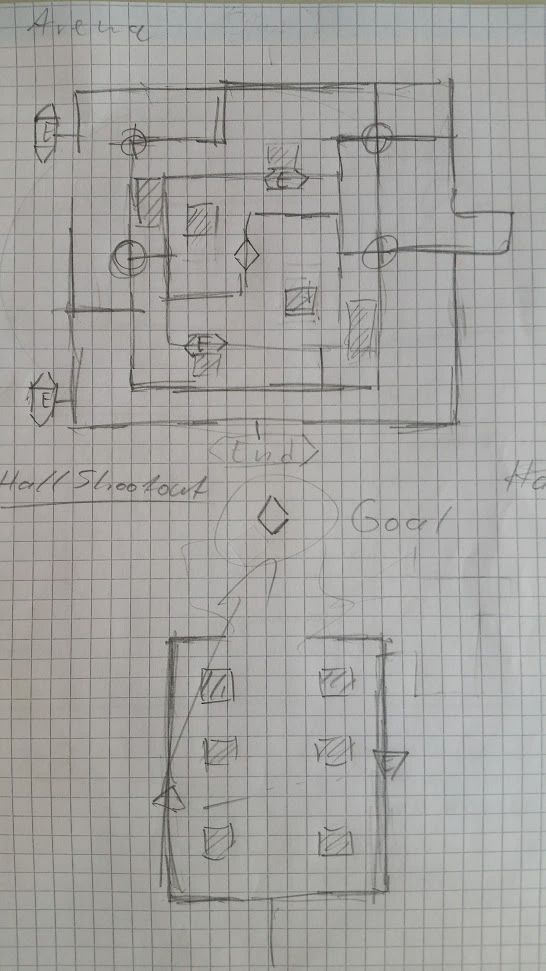 Arena
E
E
E
E
<End>
Hall Shootout
Ha
Goal
E